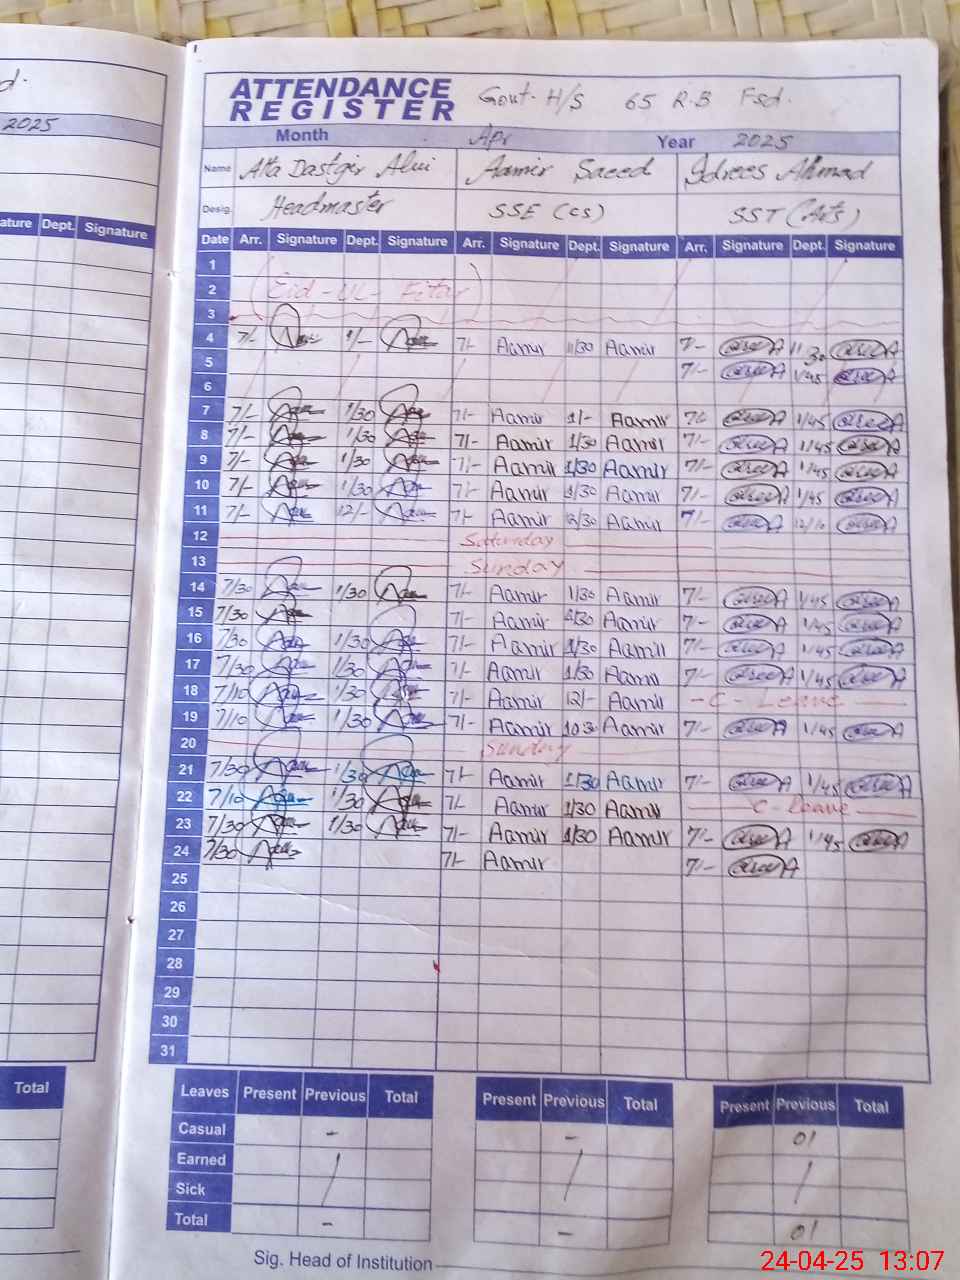 d.
2025
ature Dept. Signature
Total
ATTENDANCE
REGISTER
Govt. H/S 65 R.B Fsd.
Month Apr Year 2025
Name Ata Dastgir Alvi Aamir Saeed Idrees Ahmad
Desig. Headmaster SSE (CS) SST (Arts)
Date Arr. Signature Dept. Signature Arr. Signature Dept. Signature Arr. Signature Dept. Signature
1
2 (Eid-UL-Fitar)
3
4 7/- 1/- 7/- Aamir 11/30 Aamir 7/- 11 30
5 7/- 1/45
6
7 7/- 1/30 7/- Aamir 1/- Aamir 7/- 1/45
8 7/- 1/30 7/- Aamir 1/30 Aamir 7/- 1/45
9 7/- 1/30 7/- Aamir 1/30 Aamir 7/- 1/45
10 7/- 1/30 7/- Aamir 1/30 Aamir 7/- 1/45
11 7/- 12/- 7/- Aamir 12/30 Aamir 7/- 12/10
12 Saturday
13 Sunday
14 7/30 1/30 7/- Aamir 1/30 Aamir 7/- 1/45
15 7/30 7/- Aamir 1/30 Aamir 7- 1/45
16 7/30 1/30 7/- Aamir 1/30 Aamir 7/- 1/45
17 7/30 1/30 7/- Aamir 1/30 Aamir 7/- 1/45
18 7/10 1/30 7/- Aamir 12/- Aamir - C - Leave
19 7/10 1/30 7/- Aamir 10 3 Aamir 7/- 1/45
20 Sunday
21 7/30 1/30 7/- Aamir 1/30 Aamir 7/- 1/45
22 7/10 1/30 7/- Aamir 1/30 Aamir C - Leave
23 7/30 1/30 7/- Aamir 1/30 Aamir 7/- 1/45
24 7/30 7/- Aamir 7/-
25
26
27
28
29
30
31
Leaves Present Previous Total Present Previous Total Present Previous Total
Casual - - 01
Earned / / /
Sick
Total - - 01
Sig. Head of Institution
24-04-25 13:07